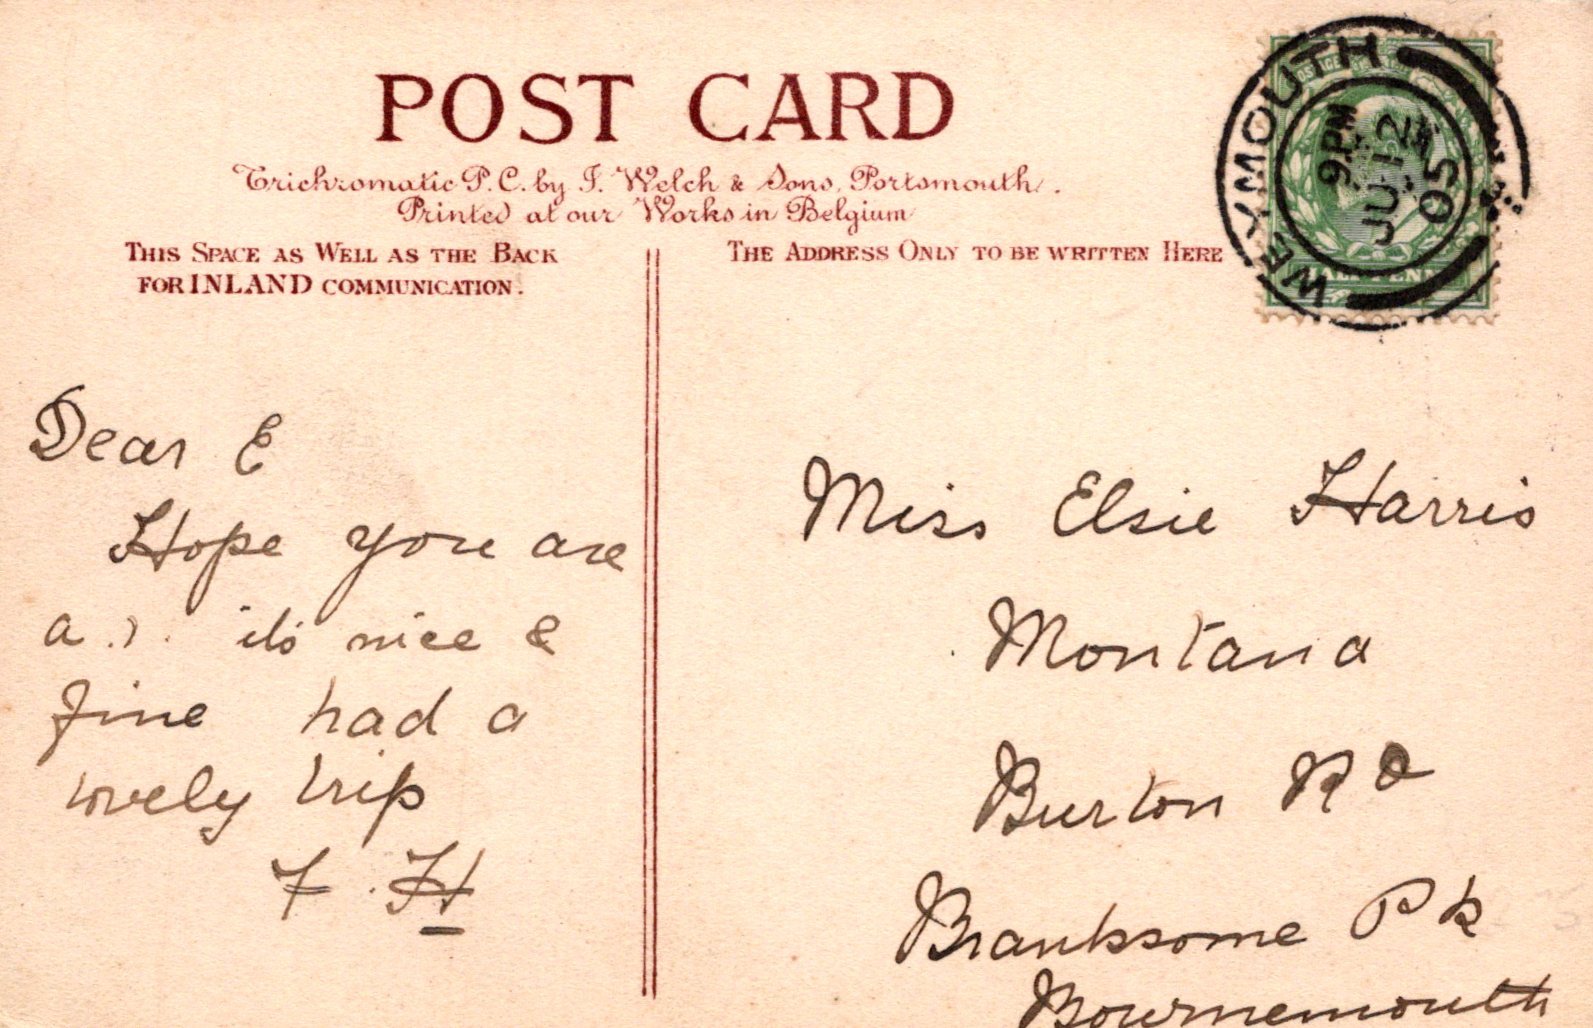 POST CARD
Trichromatic P.C. by J. Welch & Sons, Portsmouth.
Printed at our Works in Belgium
THIS SPACE AS WELL AS THE BACK
FOR INLAND COMMUNICATION.
THE ADDRESS ONLY TO BE WRITTEN HERE
WEYMOUTH
9 PM
JU 12
05
POSTAGE
HALFPENNY
Dear E
Hope you are
a.1. it's nice &
fine had a
lovely trip
F. H
Miss Elsie Harris
Montana
Burton Rd
Branksome Pk
Bournemouth